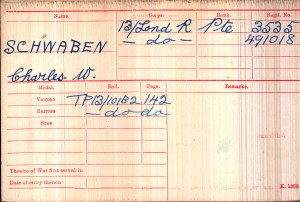 Name. Corps. Rank. Regtl. No.
13/Lond R Pte 3535
SCHWABEN - do - 491018
Charles W.
Medal. Roll. Page. Remarks.
VICTORY TP13/101B2 142
BRITISH - do do
STAR
Theatre of War first served in
Date of entry therein
K. 1380